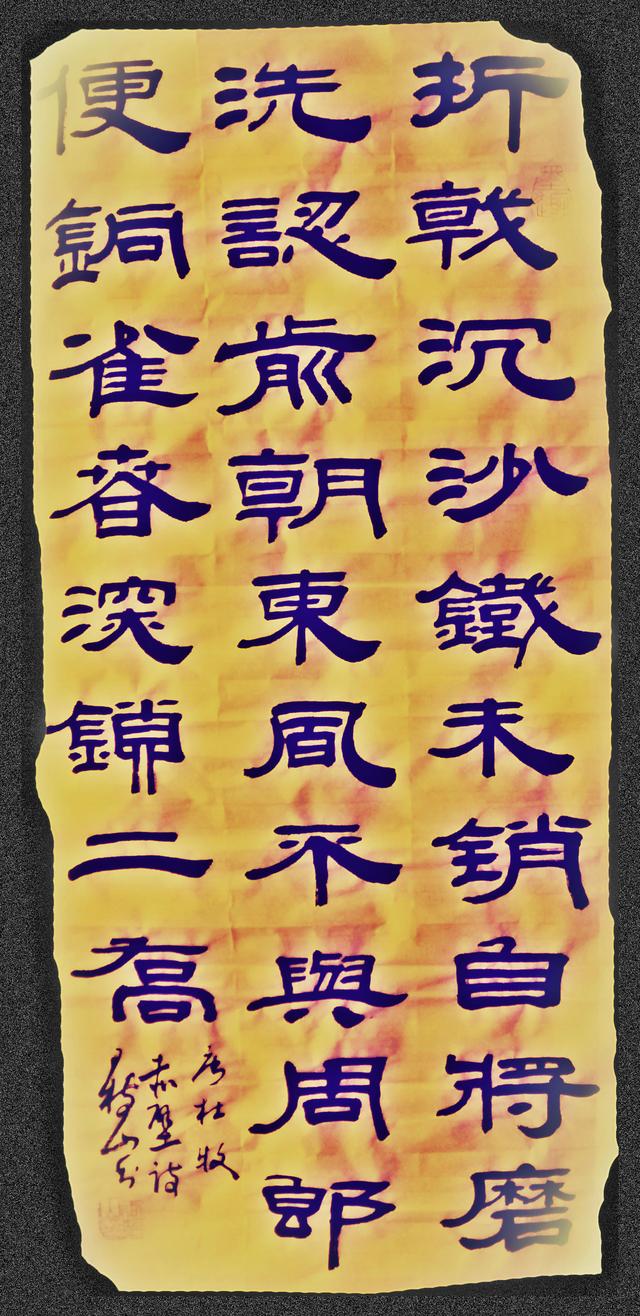 折戟沉沙鐵未銷自將磨
洗認前朝東風不與周郎
便銅雀春深鎖二喬
唐杜牧
赤壁詩
山书